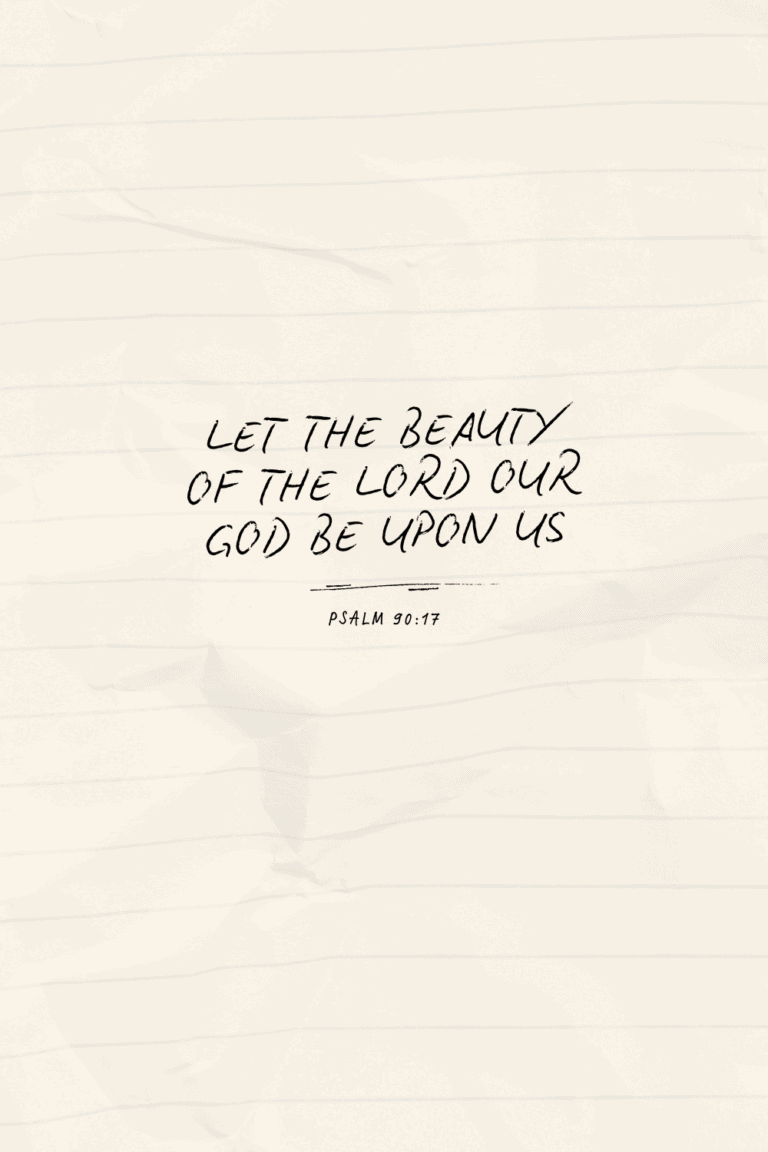 LET THE BEAUTY
OF THE LORD OUR
GOD BE UPON US
PSALM 90:17